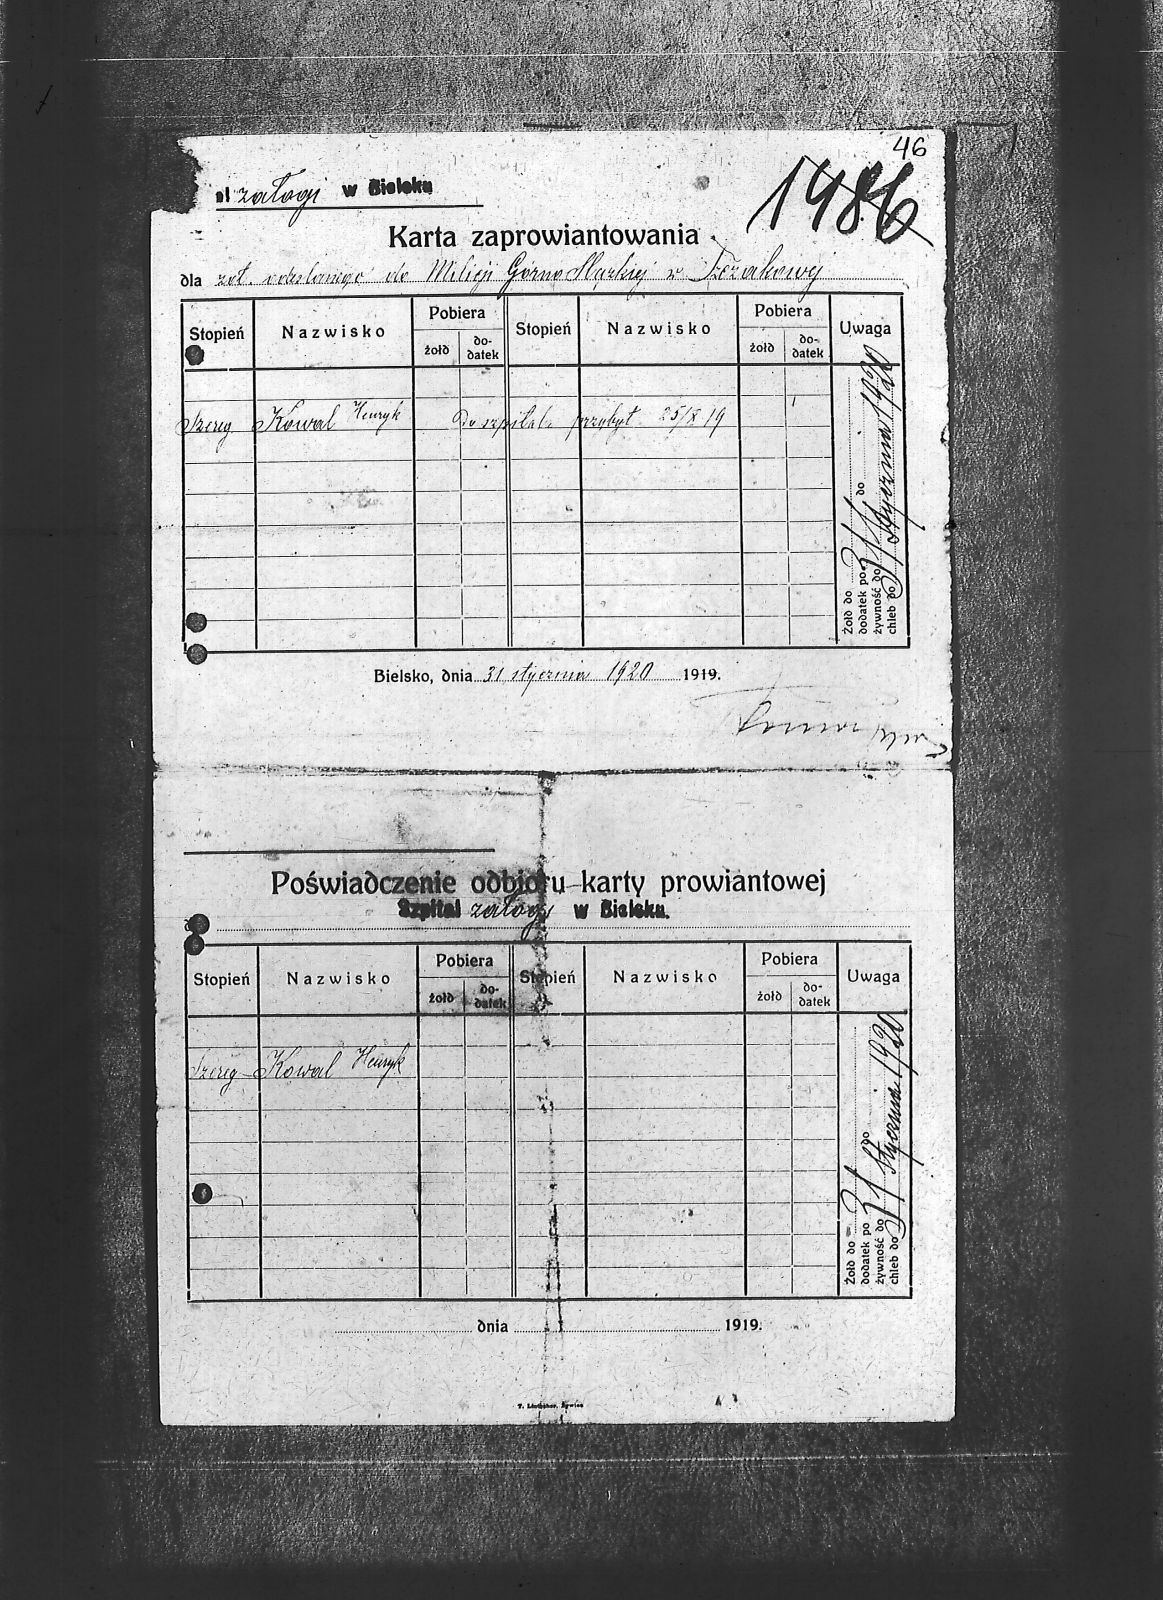 46
1486
załogi w Bielsku
Karta zaprowiantowania
dla żoł. odesłanego do Milicji Górno Śląskiej w Szczakowej
Stopień Nazwisko Pobiera Stopień Nazwisko Pobiera Uwaga
żołd do-datek żołd do-datek
Szereg Kowal Henryk Do szpitala przybył 25/X 19
Żołd do 31
dodatek po do
żywność do 31 stycznia 1920
chleb do
Bielsko, dnia 31 stycznia 1920 1919.
Poświadczenie odbioru karty prowiantowej
Szpital załogi w Bielsku.
Stopień Nazwisko Pobiera Stopień Nazwisko Pobiera Uwaga
żołd do-datek żołd do-datek
Szereg Kowal Henryk
Żołd do 31
dodatek po do
żywność do 31 stycznia 1920
chleb do
dnia 1919.